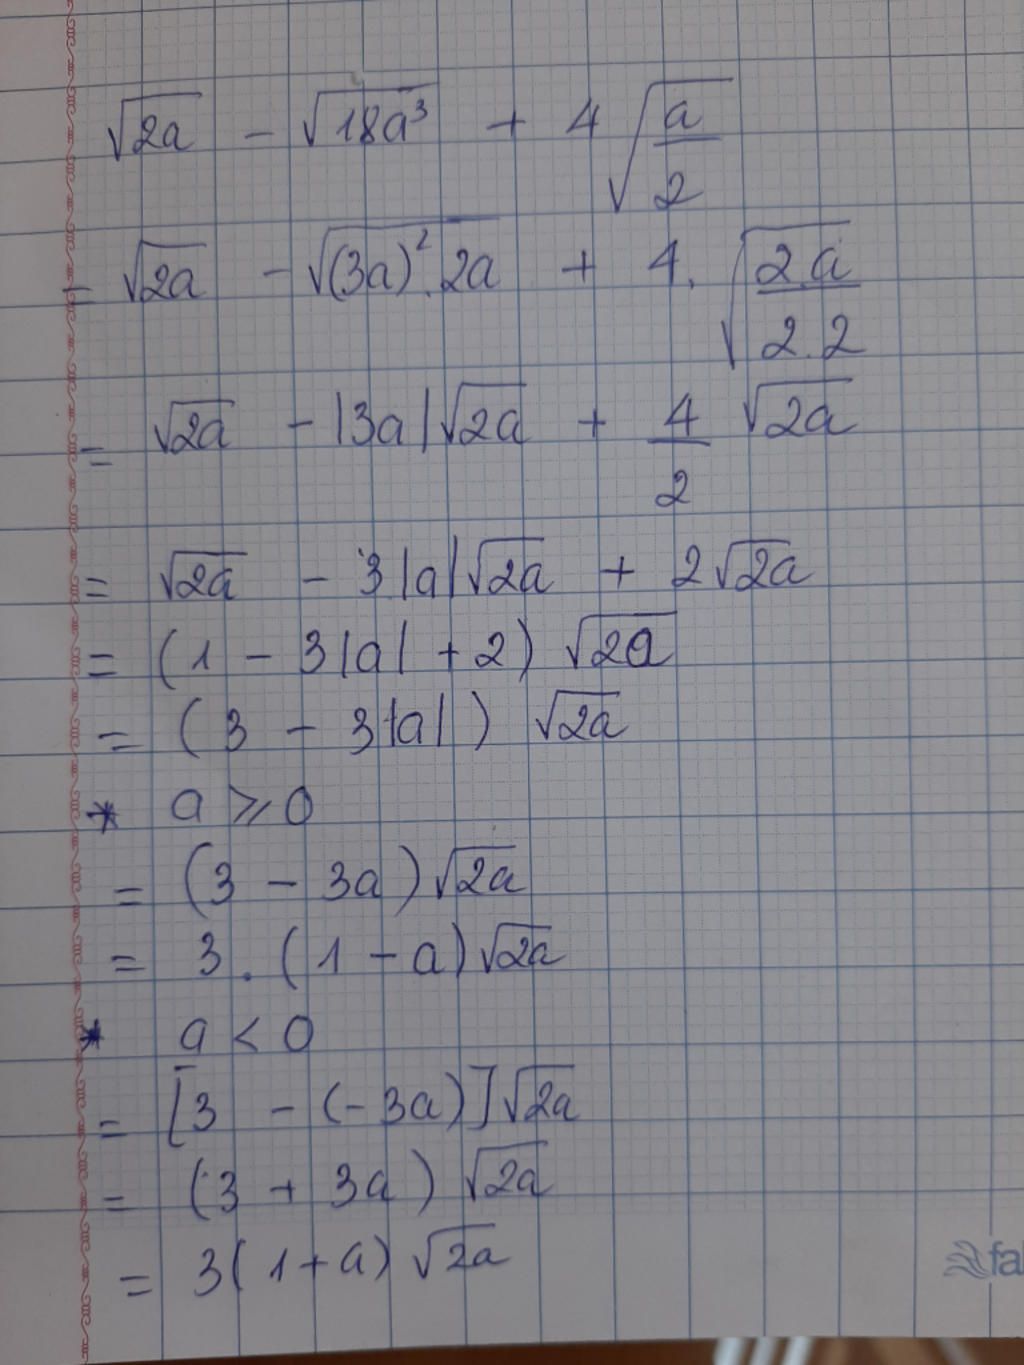 √2a - √18a³ + 4√a/2
= √2a - √(3a)².2a + 4.√2.a/2.2
= √2a - |3a|√2a + 4/2 √2a
= √2a - 3|a|√2a + 2√2a
= (1 - 3|a| + 2) √2a
= (3 - 3|a|) √2a
* a ⩾ 0
= (3 - 3a)√2a
= 3.(1 - a)√2a
* a < 0
= [3 - (-3a)]√2a
= (3 + 3a) √2a
= 3(1+a) √2a